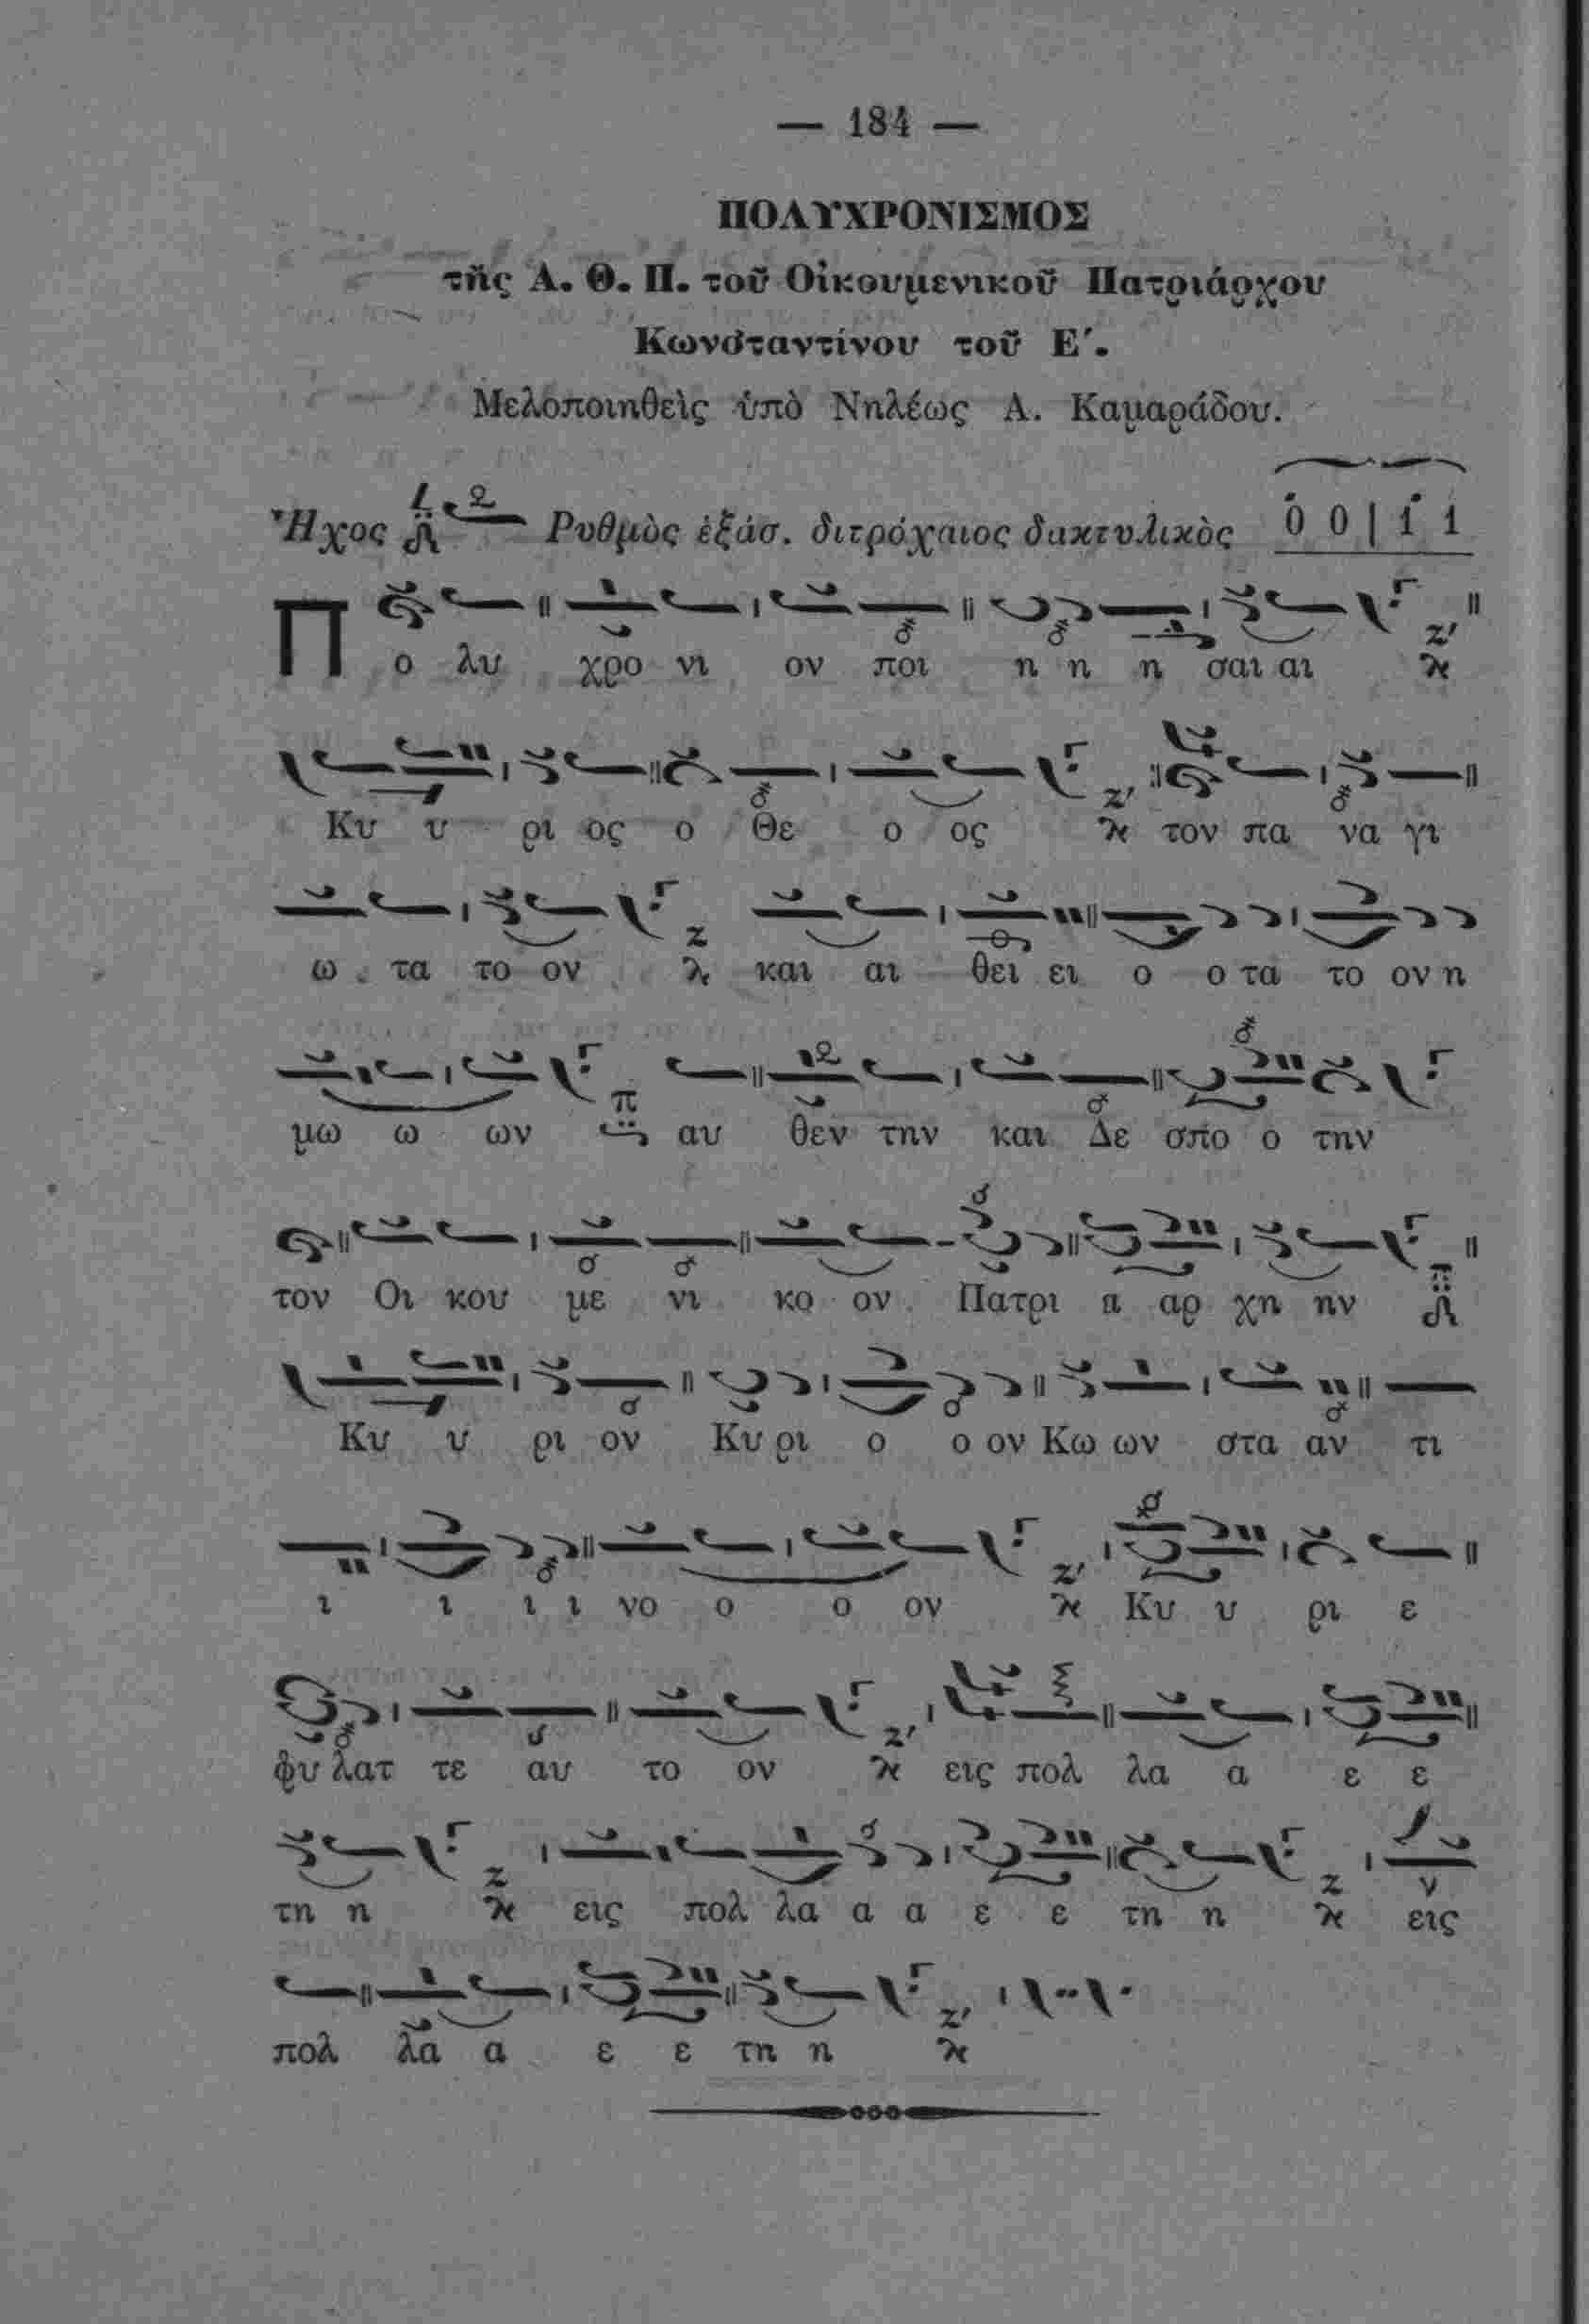 — 184 —
ΠΟΛΥΧΡΟΝΙΣΜΟΣ
τῆς Α. Θ. Π. τοῦ Οἰκουμενικοῦ Πατριάρχου
Κωνσταντίνου τοῦ Ε΄.
Μελοποιηθεὶς ὑπὸ Νηλέως Α. Καμαράδου.
Ἦχος Ῥυθμὸς ἑξάσ. διτρόχαιος δακτυλικὸς 0 0 | 1 1
Π ο λυ χρο νι ον ποι η η η σαι αι
Κυ υ ρι ος ο Θε ο ος τον πα να γι
ω τα το ον και αι θει ει ο ο τα το ον η
μω ω ων αυ θεν την και Δε σπο ο την
τον Οι κου με νι κο ον Πατρι α αρ χη ην
Κυ υ ρι ον Κυ ρι ο ο ον Κω ων στα αν τι
ι ι ι ι νο ο ο ον Κυ υ ρι ε
φυ λατ τε αυ το ον εις πολ λα α ε ε
τη η εις πολ λα α α ε ε τη η εις
πολ λα α ε ε τη η